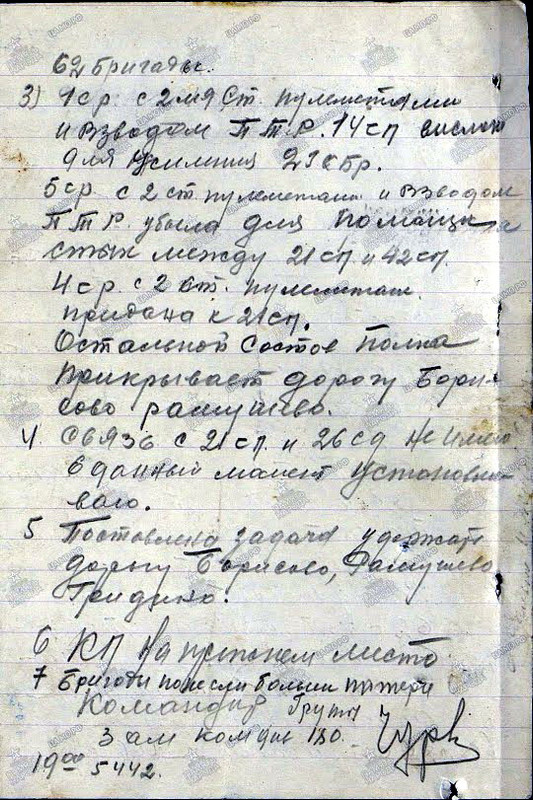 62 Бригады.
3) 1 ср. с 2 мя Ст. пулеметами
и Взводом П.Т.Р. 14 сп
для усиления Бр.
5 ср. с 2 ст пулеметами и Взводом
П.Т.Р. убыла для помощи на
стык между 21 сп и 42 сп.
4 ср. с 2 ст. пулеметам.
придана к 21 сп.
Остальной состов Полка
Прикрывает дорогу Бори-
сово рамушево.
4 связь с 21 сп. и 26 сд не имею
в данный момент устоновли-
ваю.
5 Поставлена задача удержать
дорогу Борисово, Рамушево
Гридино.
6 КП на прежнем место
7 Бригады понесли больши потери
Командир Групы
Зам комдив 180.
19 00 5 4 42.